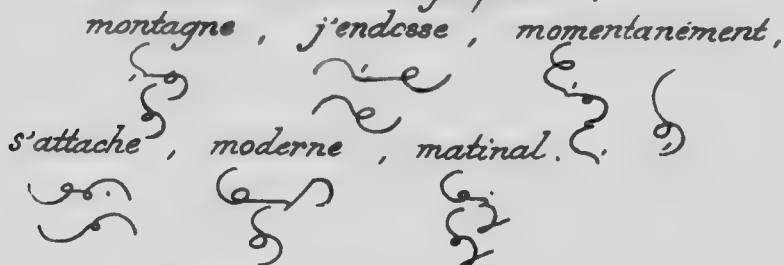 montagne, j'endosse, momentanément,
s'attache, moderne, matinal.